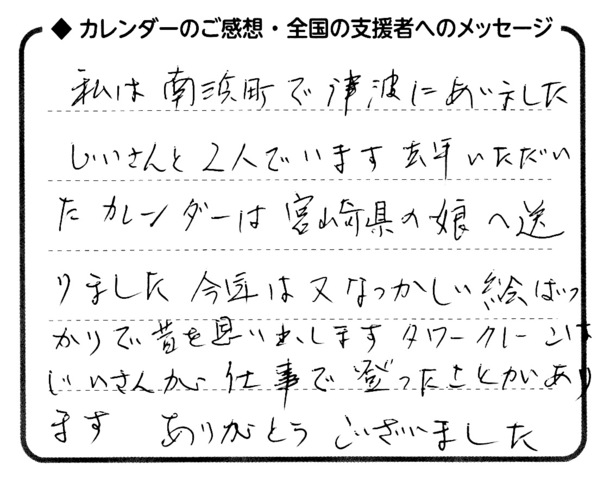 ◆ カレンダーのご感想・全国の支援者へのメッセージ
私は 南浜町で津波にあいました
じいさんと2人でいます 去年いただい
た カレンダーは 宮崎県の娘へ送
りました 今年は又なつかしい絵ばっ
かりで昔を思い出します タワークレーンは
じいさんが 仕事で登ったことがあり
ます ありがとうございました